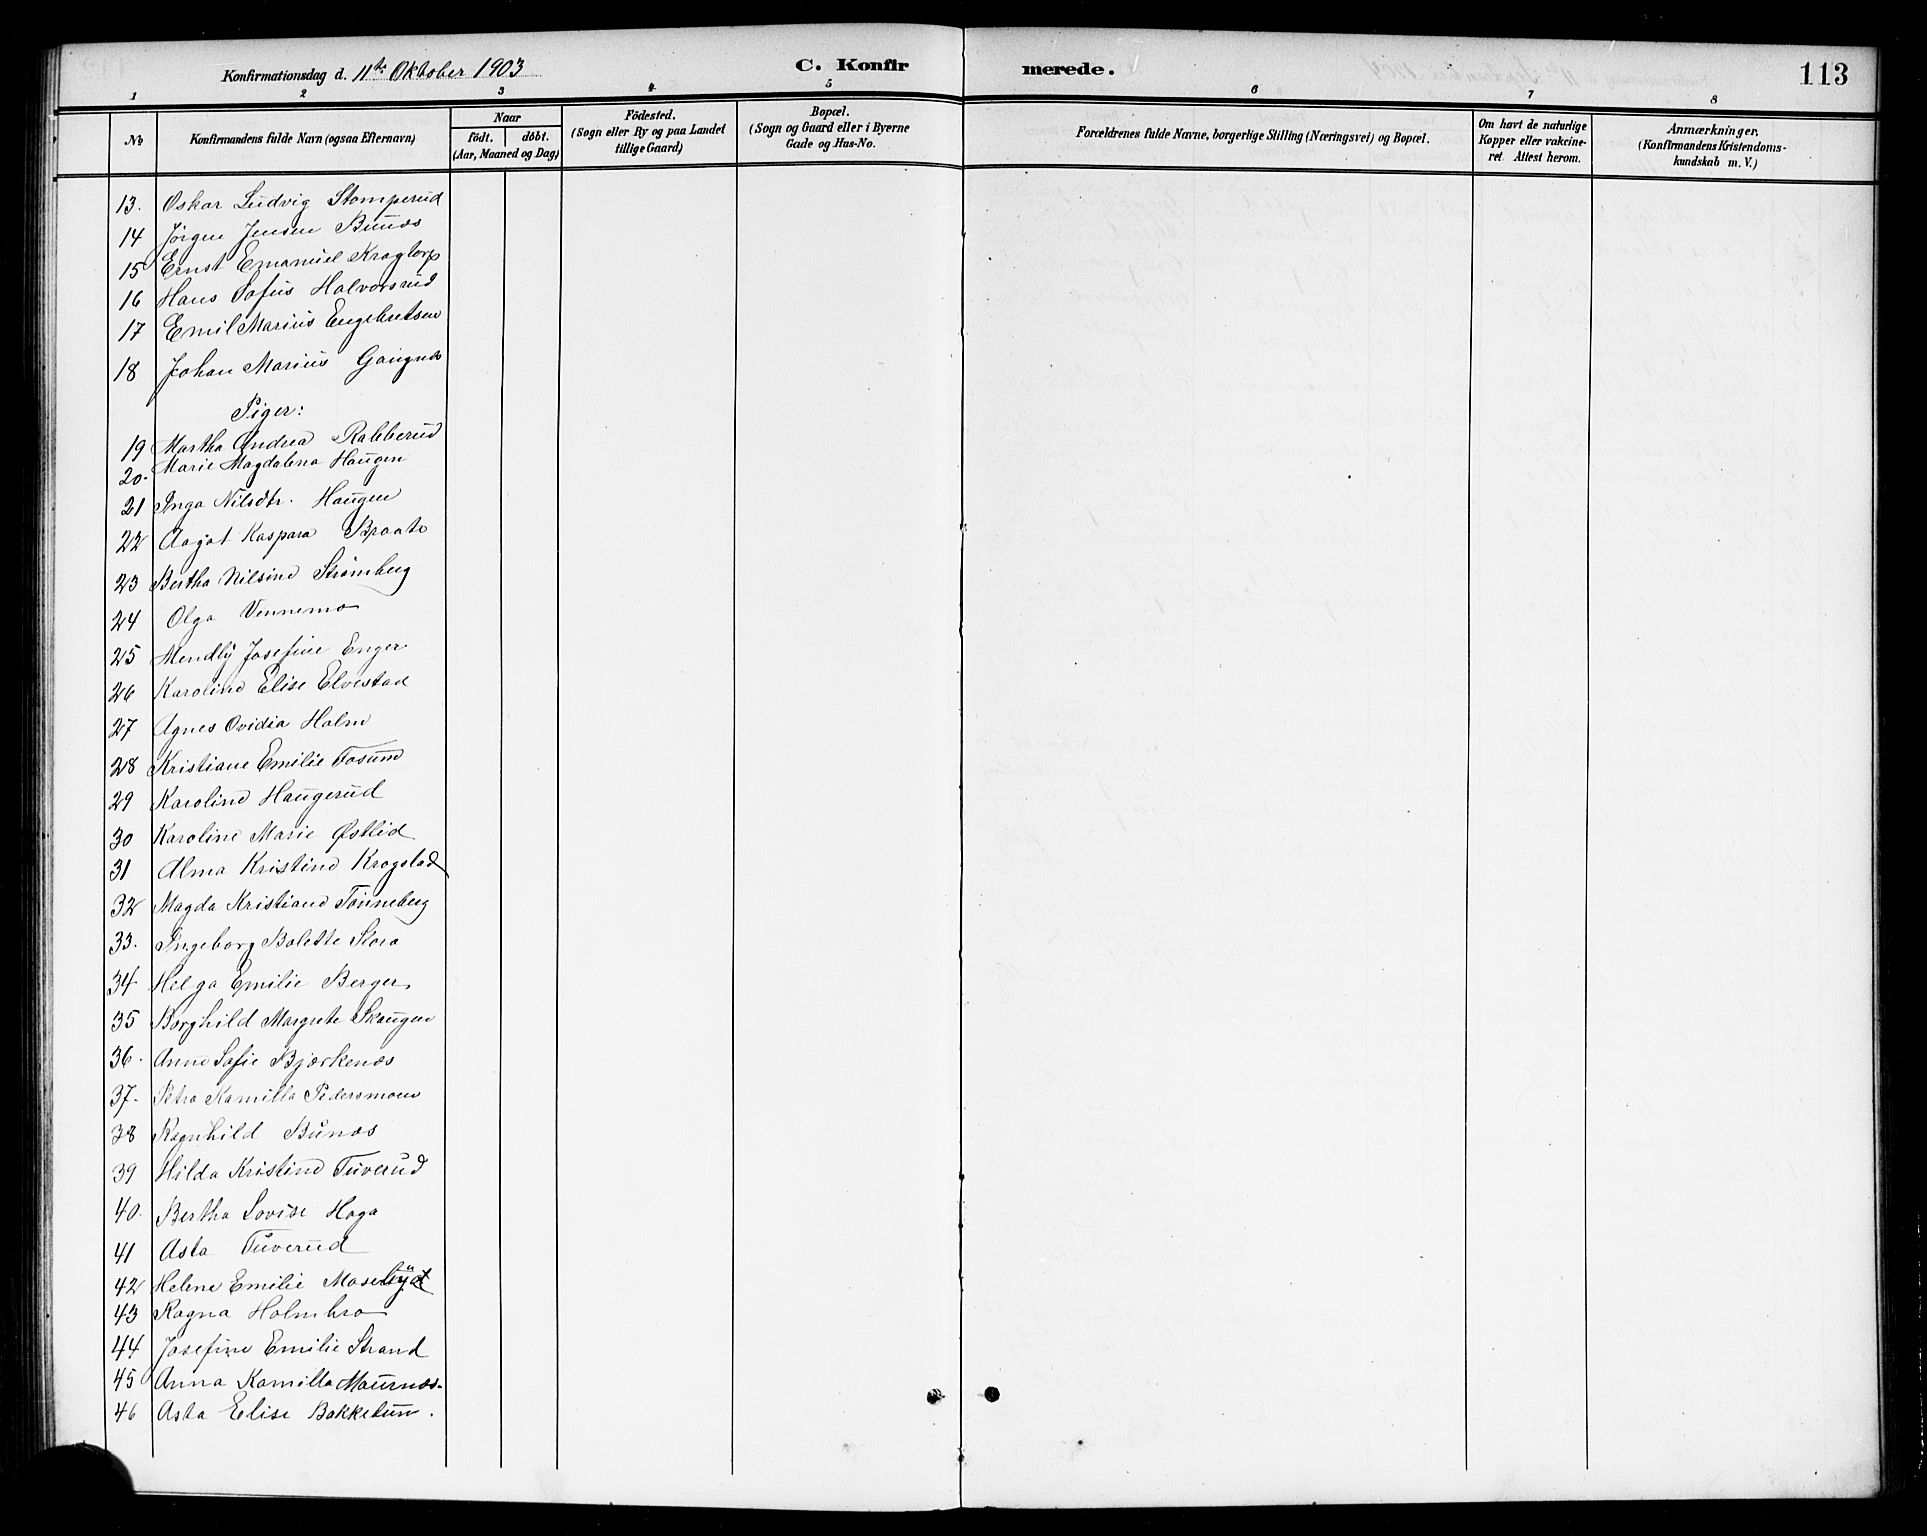 Konfirmationsdag d. 11te Oktober 1903
C. Konfirmerede.
113
1 2 3 4 5 6 7 8
No
Konfirmandens fulde Navn (ogsaa Efternavn)
Naar
födt. döbt.
(Aar, Maaned og Dag)
Födested.
(Sogn eller By og paa Landet
tillige Gaard)
Bopæl.
(Sogn og Gaard eller i Byerne
Gade og Hus-No.
Forældrenes fulde Navne, borgerlige Stilling (Næringsvei) og Bopæl.
Om havt de naturlige
Kopper eller vakcine-
ret. Attest herom.
Anmærkninger.
(Konfirmandens Kristendoms-
kundskab m. V.)
13. Oskar Ludvig Stomperud
14 Jörgen Jensen Bunæs
15 Ernst Emanuel Krogtorp
16 Hans Sofus Halvorsrud
17 Emil Marius Engebretsen
18 Johan Marius
Piger:
19 Martha Andrea Rabberud
20. Marie Magdalena Haugen
21 Inga Nilsdtr. Haugen
22 Aagot Kaspara Braate
23 Bertha Nilsine Strømberg
24 Olga Vennemo
25 Mendly Josefine Enger
26 Karoline Elise Elvestad
27 Agnes Ovidia Holm
28 Kristiane Emilie Fosum
29 Karoline Haugerud
30 Karoline Marie Østlid
31 Alma Kristine Krogstad
32 Magda Kristiane Tonneberg
33. Ingeborg Bolette Mora
34 Helga Emilie Berger
35 Borghild Margrete Skaugen
36. Anne Sofie Bjørkenæs
37. Petra Kamilla Pedersmoen
38 Ragnhild Bunæs
39 Hilda Kristine Tuverud
40. Bertha Lovise Haga
41 Asta Tuverud
42 Helene Emilie
43 Ragna Holmbro
44 Josefine Emilie Strand
45 Anna Kamilla Maurnæs.
46 Asta Elise Bakketun.